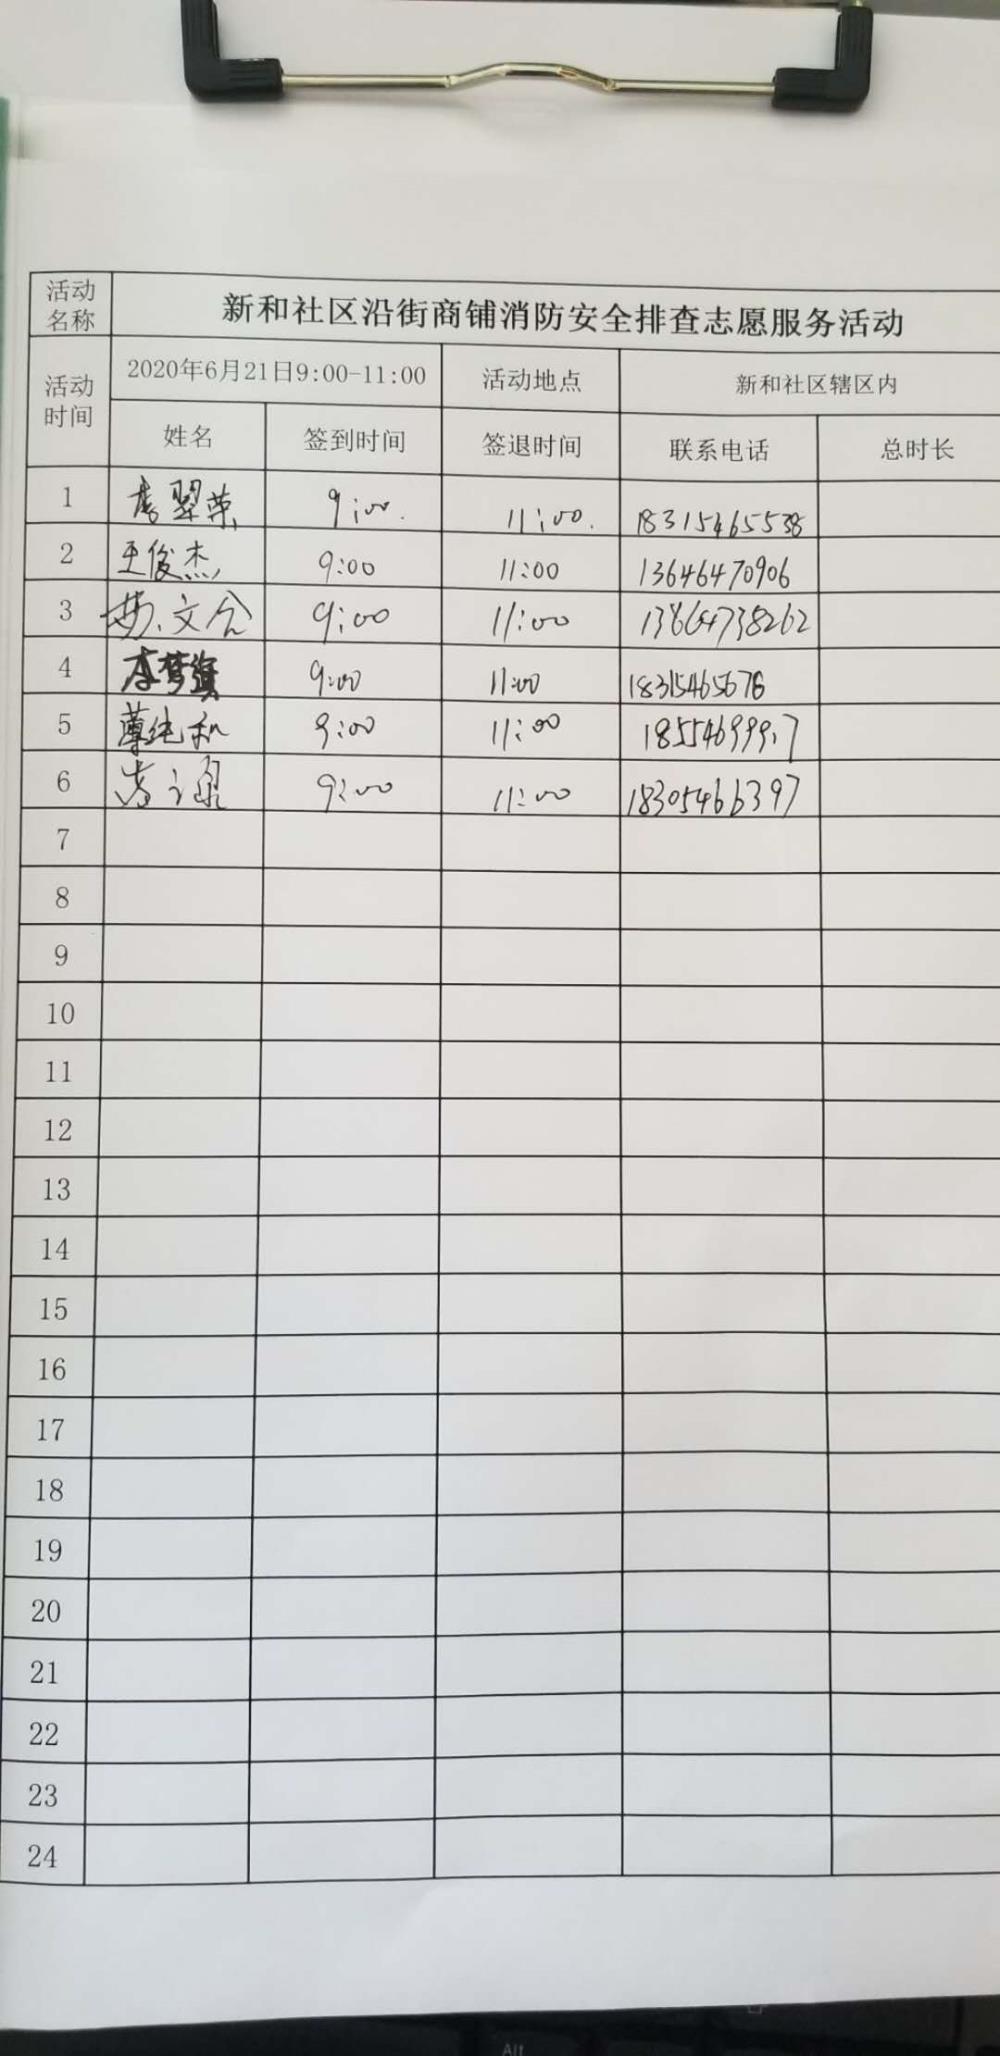 活动名称 新和社区沿街商铺消防安全排查志愿服务活动
活动时间 2020年6月21日9:00-11:00 活动地点 新和社区辖区内
姓名 签到时间 签退时间 联系电话 总时长
1 李翠荣 9:00. 11:00. 18315465538
2 王俊杰 9:00 11:00 13646470906
3 9:00 11:00 13864738262
4 李梦 9:00 11:00 18315465676
5 薄纯和 9:00 11:00
6 9:00 11:00 18305466397
7
8
9
10
11
12
13
14
15
16
17
18
19
20
21
22
23
24
Alt